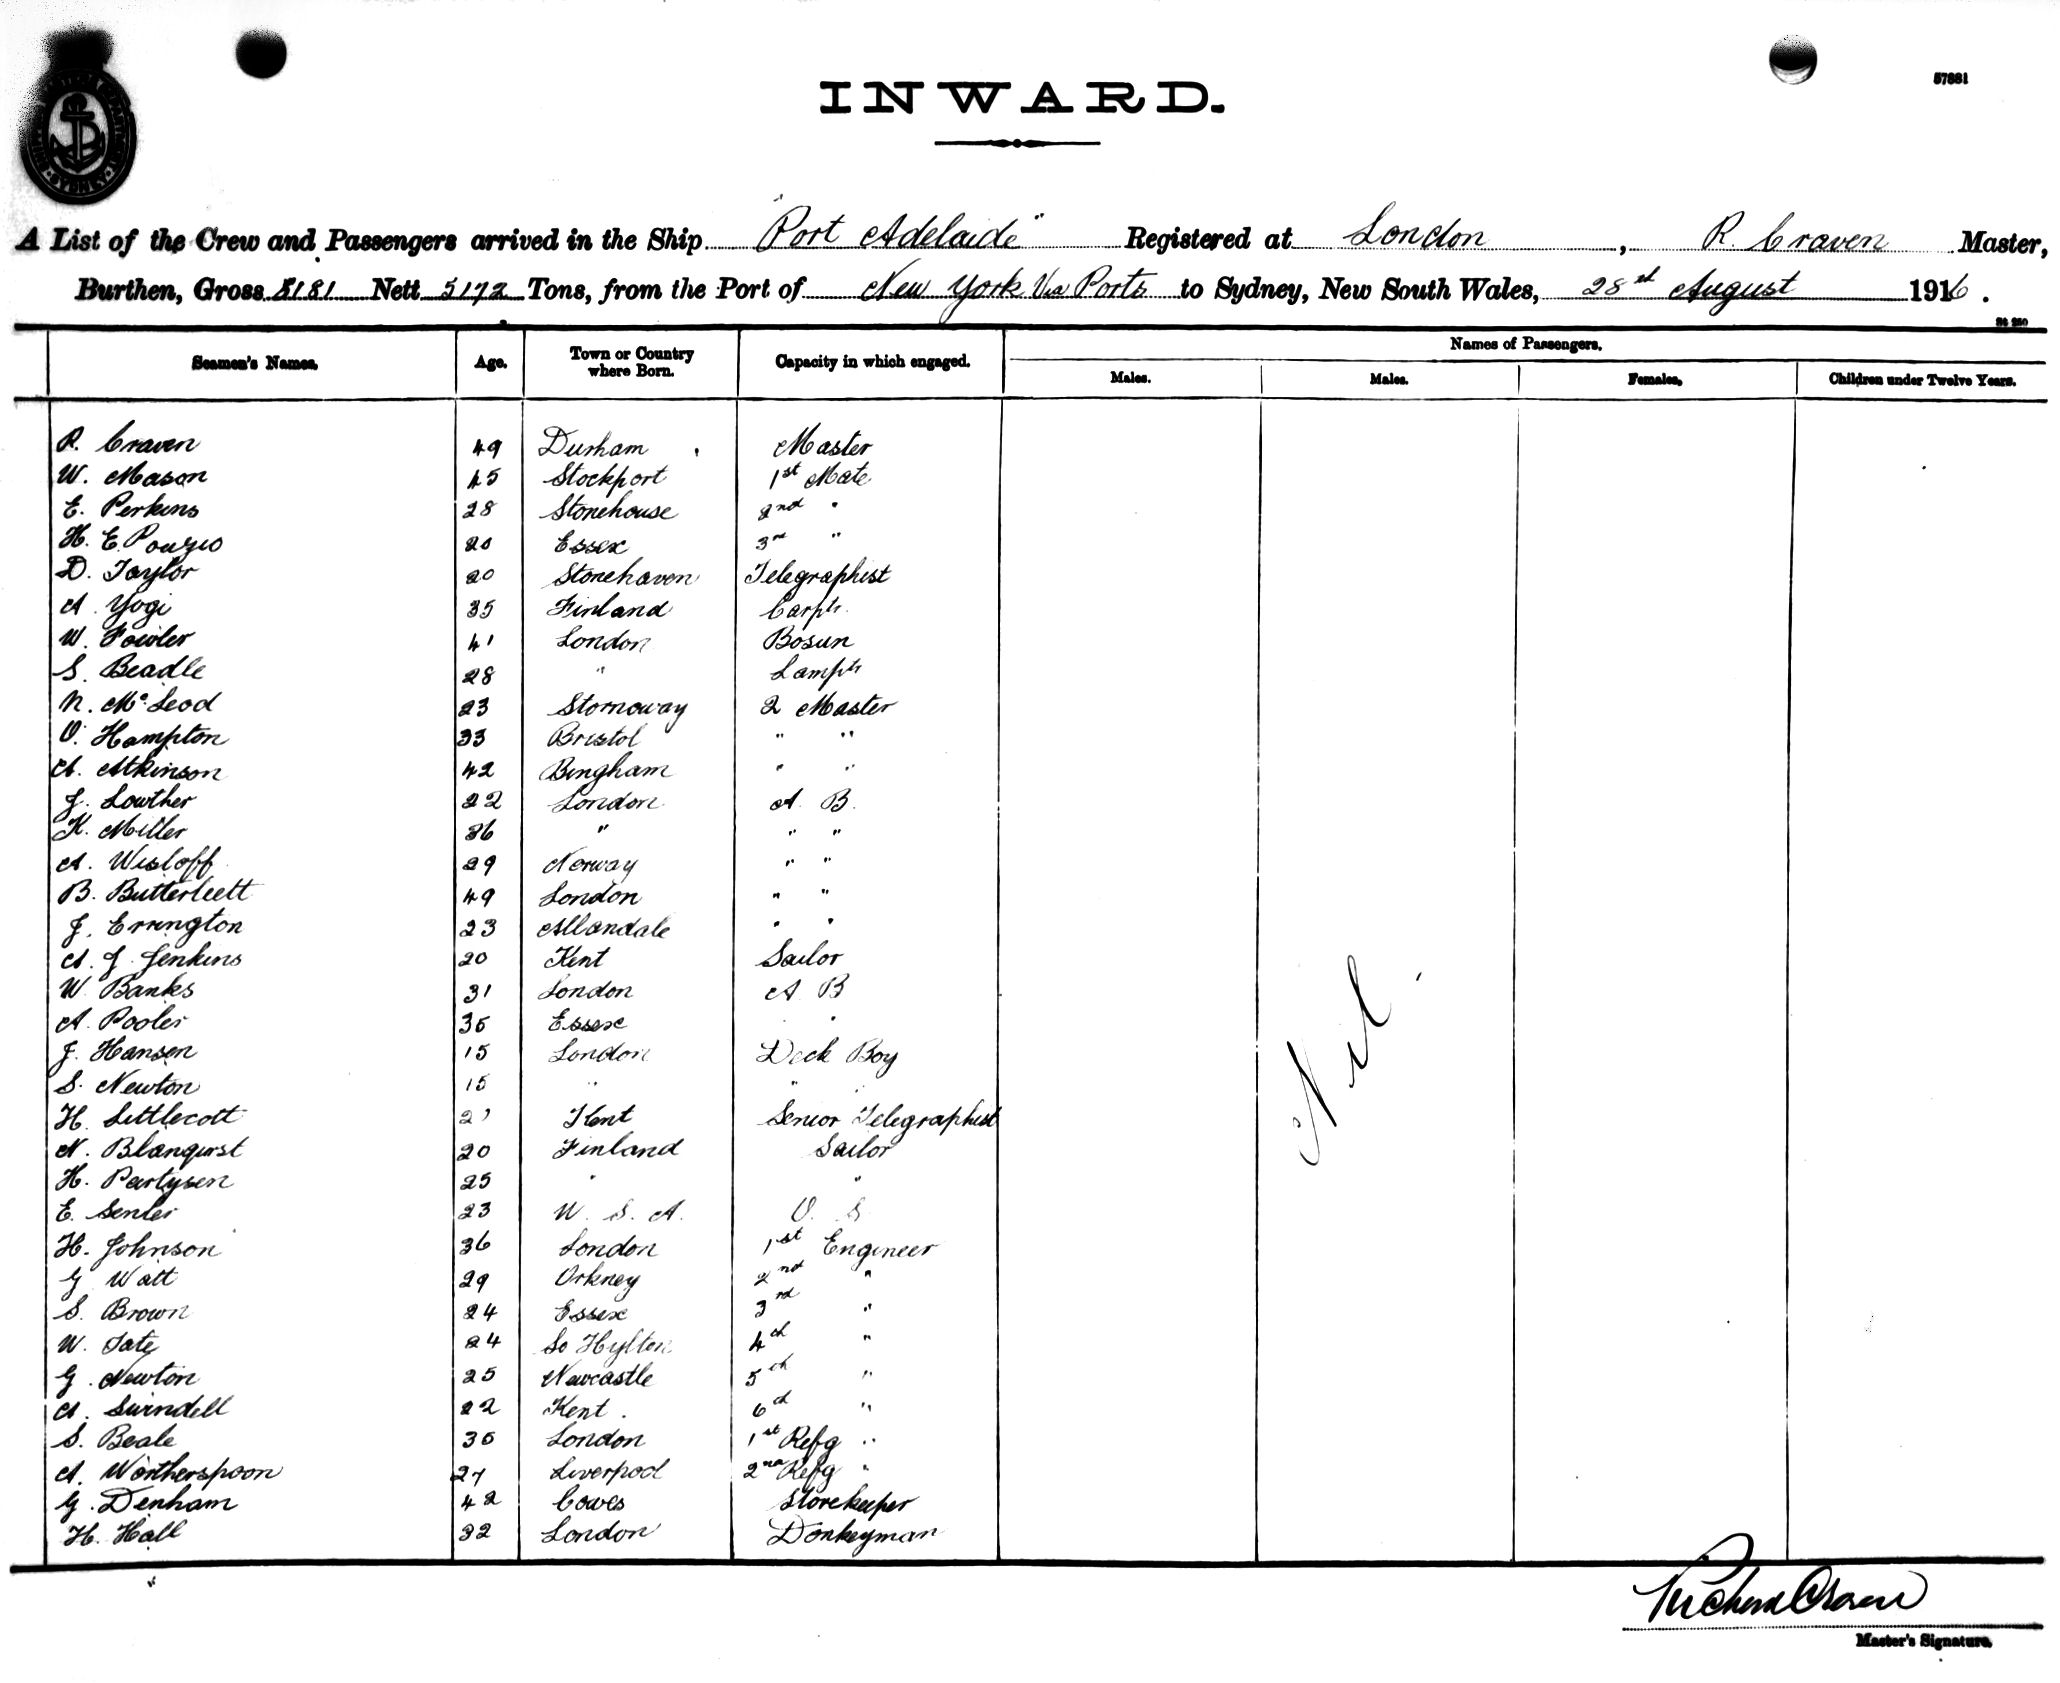 57881
INWARD.
A List of the Crew and Passengers arrived in the Ship "Port Adelaide" Registered at London, R. Craven Master,
Burthen, Gross 8181 Nett 5172 Tons, from the Port of New York Via Ports to Sydney, New South Wales, 28st August 1916.
Seamen's Names. Age. Town or Country where Born. Capacity in which engaged. Names of Passengers.
Males. Males. Females. Children under Twelve Years.
R. Craven 49 Durham Master
W. Mason 45 Stockport 1st Mate
E. Perkins 28 Stonehouse 2nd "
H. E. 20 Essex 3rd "
D. Taylor 20 Stonehaven Telegraphist
A. Yogi 35 Finland Carptr.
W. Fowler 41 London Bosun
S. Beadle 28 " Lamptr
N. McLeod 23 Stornoway 2 Master
O. Hampton 33 Bristol " "
A. Atkinson 42 Bingham " "
J. Lowther 22 London A. B.
K. Miller 36 " " "
A. Wisloff 29 Norway " "
B. 49 London " "
J. Errington 23 Allandale " "
A. J. Jenkins 20 Kent Sailor
W. Banks 31 London A B
A. Pooler 35 Essex "
J. Hansen 15 London Deck Boy
S. Newton 15 " " "
H. Littlecott 21 Kent Senior Telegraphist
N. Blanqwist 20 Finland Sailor
H. Partysen 25 " "
E. Senter 23 U. S. A. O. S.
H. Johnson 36 London 1st Engineer
G. Watt 29 Orkney 2nd "
S. Brown 24 Essex 3rd "
W. Tate 24 So Hylton 4th "
G. Newton 25 Newcastle 5th "
A. Swindell 22 Kent. 6th "
S. Beale 30 London 1st Refg "
A. Wortherspoon 27 Liverpool 2nd Refg "
G. Denham 42 Cowes Storekeeper
H. Hall 32 London Donkeyman
Nil.
Richard Craven
Master's Signature.